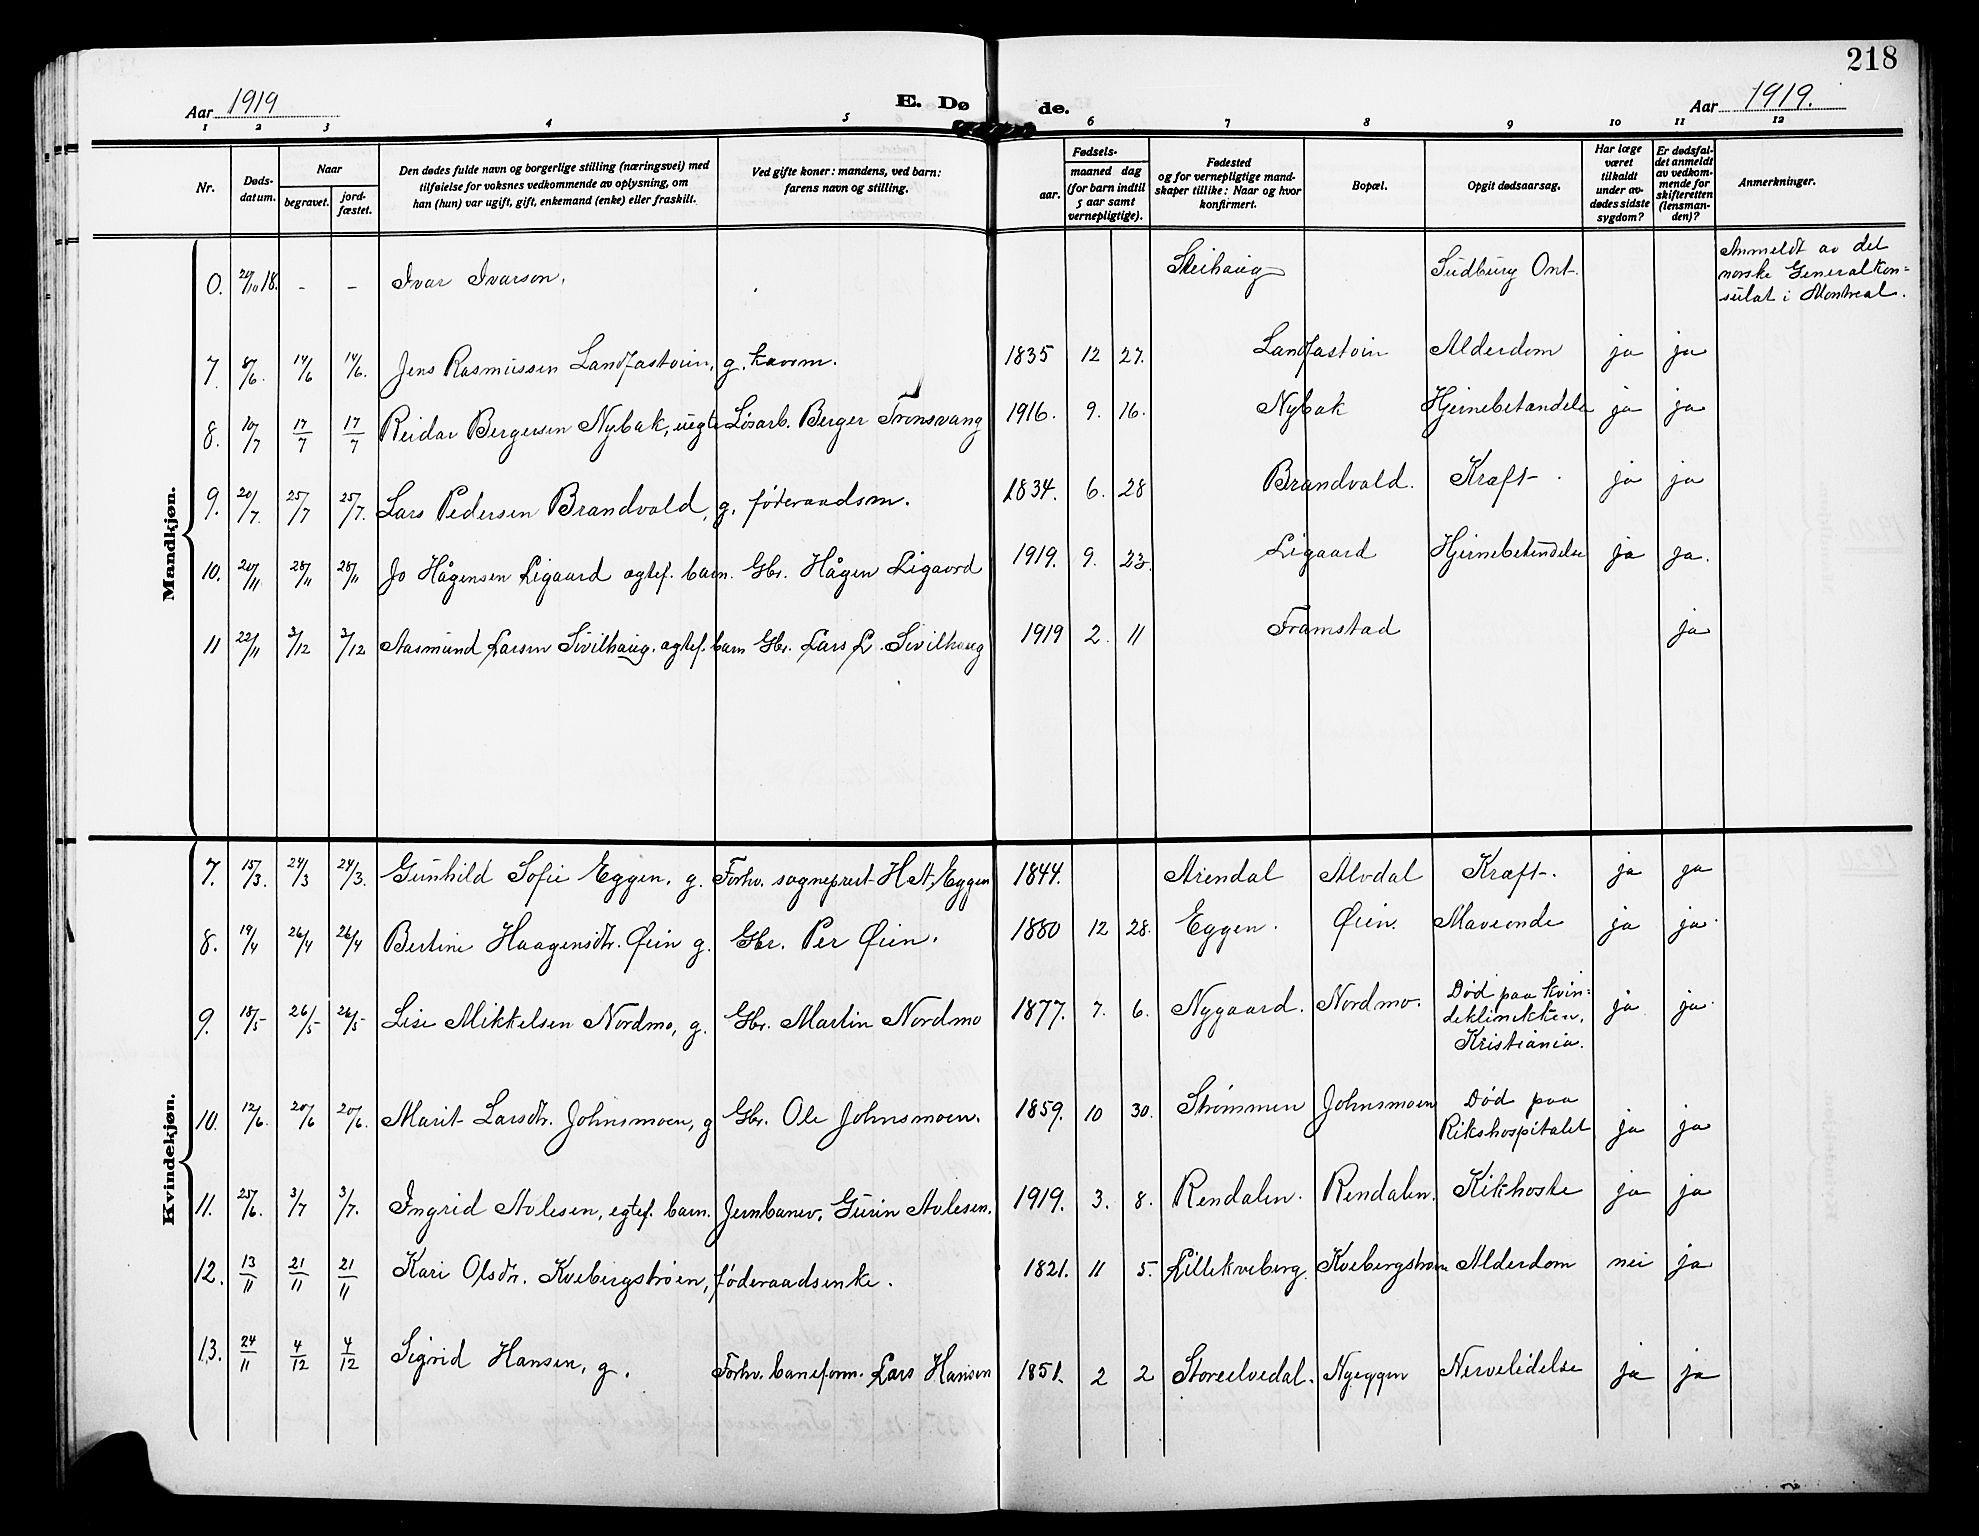 218
Aar 1919
E. Døde.
Aar 1919.
1 2 3 4 5 6 7 8 9 10 11 12
Nr.
Døds-
datum.
Naar
begravet.
jord-
fæstet.
Den dødes fulde navn og borgerlige stilling (næringsvei) med
tilføielse for voksnes vedkommende av oplysning, om
han (hun) var ugift, gift, enkemand (enke) eller fraskilt.
Ved gifte koner: mandens, ved barn:
farens navn og stilling.
Fødsels-
aar.
maaned dag
(for barn indtil
5 aar samt
vernepligtige).
Fødested
og for vernepligtige mand-
skaper tillike: Naar og hvor
konfirmert.
Bopæl.
Opgit dødsaarsag.
Har læge
været
tilkaldt
under av-
dødes sidste
sygdom?
Er dødsfal-
det anmeldt
av vedkom-
mende for
skifteretten
(lensman-
den)?
Anmerkninger.
Mandkjøn.
0. 20/10 18. - - Ivar Ivarson. Skeihaug Sudbury Ont. Anmeldt av det
norske Generalkon=
sulat i Montreal.
7. 8/6. 14/6 14/6. Jens Rasmussen Landfastøien, g. kaarm. 1835 12 27. Landfastøien Alderdom ja ja
8. 10/7 17/7 17/7 Reidar Bergersen Nybak, uegte Løsarb. Berger Tronsvang 1916. 9. 16. Nybak Hjernebetændelse ja ja
9. 20/7. 25/7 25/7. Lars Pedersen Brandvold, g. føderaadsm. 1834. 6. 28 Brandvold. Kræft. ja ja
10. 20/11 28/11 28/11 Jo Hågensen Ligaard ægtef. barn. Gbr. Hågen Ligaard 1919. 9. 23. Ligaard Hjernebetændelse ja ja.
11 22/11 3/12 3/12 Aasmund Larsen Sivilhaug. ægtef. barn Gbr. Lars L. Sivilhaug 1919 2. 11 Framstad ja
Kvindekjøn.
7. 15/3. 24/3 24/3. Gunhild Sofie Eggen, g. Forhv. sogneprest H. A. Eggen 1844. Arendal Alvdal Kræft. ja ja
8. 19/4 26/4 26/4 Bertine Haagensdtr. Øien g. Gbr. Per Øien. 1880 12 28. Eggen. Øien. Maveonde ja ja.
9. 18/5 26/5 26/5. Lise Mikkelsen Nordmo, g. Gbr. Martin Nordmo 1877. 7. 6. Nygaard. Nordmo. Død paa kvin=
deklinikken,
Kristiania. ja ja.
10. 12/6. 20/6 20/6. Marit Larsdtr. Johnsmoen, g Gbr. Ole Johnsmoen. 1859. 10 30. Strømmen Johnsmoen Død paa
Rikshospitalet ja ja
11. 25/6. 3/7 3/7. Ingrid Avlesen, egtef. barn. Jernbanev. Gurin Avlesen. 1919. 3. 8. Rendalen. Rendalen. Kikhoste ja ja
12. 13/11 21/11 21/11 Kari Olsdtr. Kvebergstrøen, føderaadsenke. 1821. 11 5. Lillekveberg. Kvebergstrøen Alderdom nei ja
13. 24/11 4/12 4/12 Sigrid Hansen, g. Forhv. baneform. Lars Hansen 1851. 2 2 Storeelvedal. Nyeggen Nervelidelse ja ja